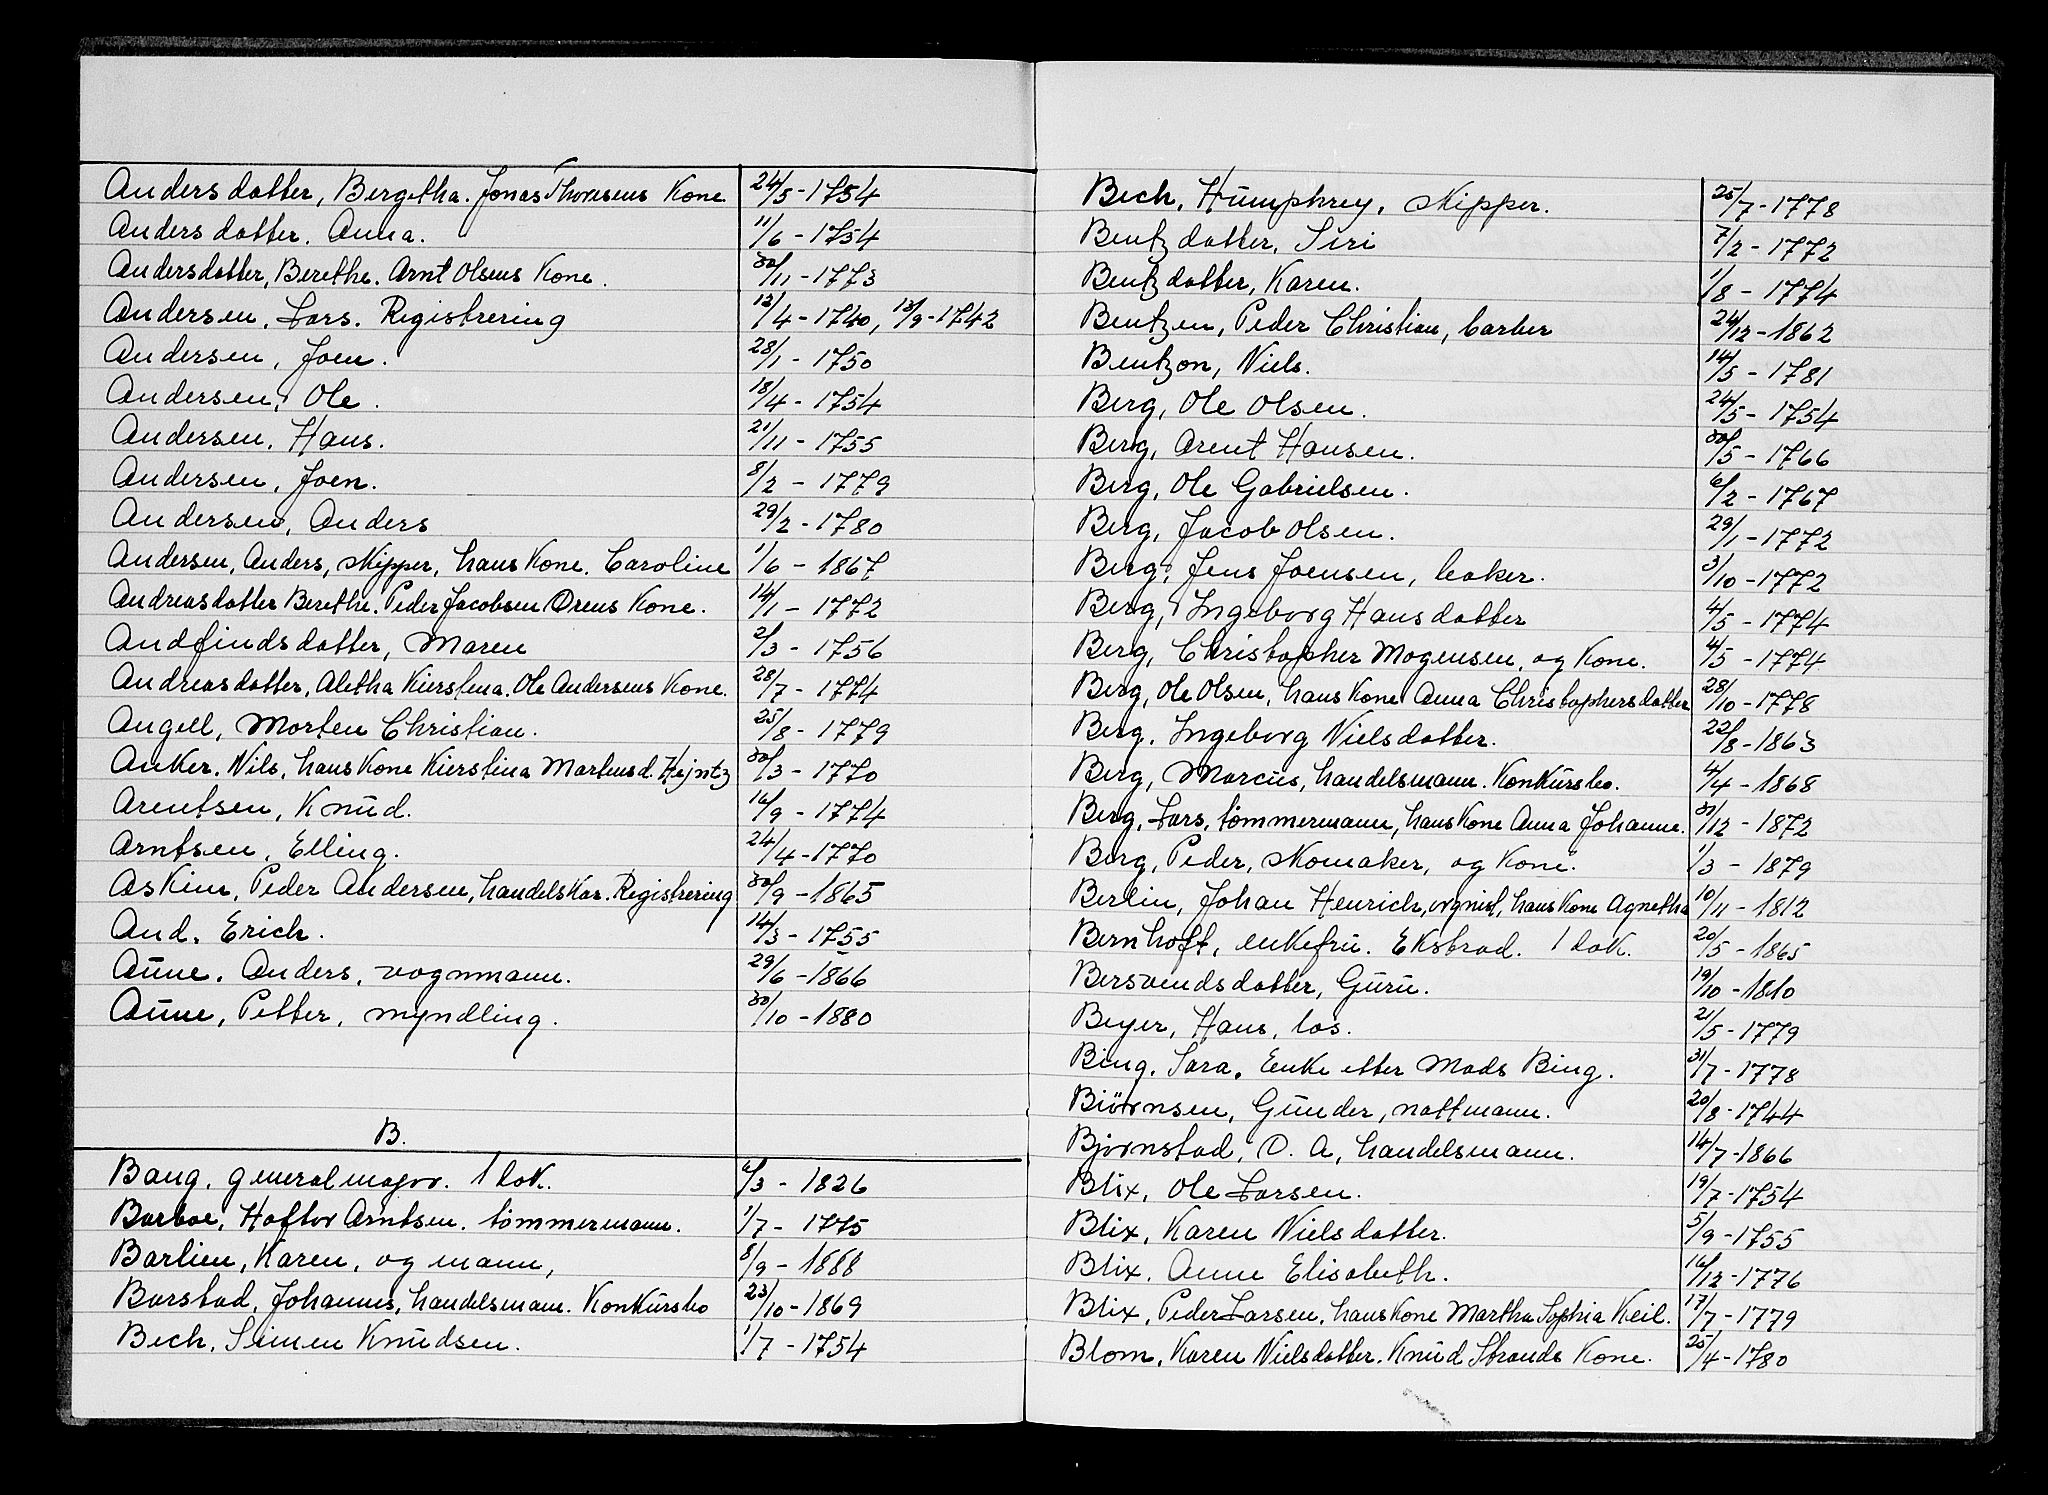 Andersdatter, Bergetha. Jonas Thoresens Kone 24/5 - 1754
Andersdatter. Anna. 11/6 - 1754
Andersdatter, Berethe. Arnt Olsens Kone. 30/11 - 1773
Andersen, Lars. Registrering 12/4 - 1740, 13/9 - 1742
Andersen, Joen. 28/1 - 1750
Andersen, Ole. 18/4 - 1754
Andersen, Hans. 21/11 - 1755
Andersen, Joen. 8/2 - 1779
Andersen, Anders 29/2 - 1780
Andersen, Anders, skipper, hans Kone. Caroline 1/6 - 1867
Andreasdatter Berethe. Peder Jacobsen Örens Kone. 14/1 - 1772
Andfindsdatter, Maren 2/3 - 1756
Andreasdatter, Aletha Kierstena. Ole Andersens Kone. 28/7 - 1774
Angell, Morten Christian. 25/8 - 1779
Anker. Nils, hans Kone Kierstina Martensd. Hejntz 30/3 - 1770
Arentsen, Knūd. 16/9 - 1774
Arntsen, Elling. 24/4 - 1770
Askim, Peder Andersen, handelskar. Registrering 30/9 - 1865
Aud. Erich. 14/3 - 1755
Aūne. Anders, vognmann. 29/6 - 1866
Aūne, Petter, myndling. 30/10 - 1880
B.
Bang. generalmajor. 1 dok. 6/3 - 1826
Barboe, Haftor Arntsen. tömmermann. 1/7 - 1775
Barlien, Karen, og mann, 8/9 - 1888
Barstad, Johannes, handelsmann. Konkūrsbo 23/10 - 1869
Bech, Simen Knūdsen. 1/7 - 1754
Bech, Hūmphrey, skipper. 25/7 - 1778
Bentzdatter, Siri 7/2 - 1772
Bentzdatter, Karen. 1/8 - 1774
Bentzen, Peder Christian, barber 24/12 - 1862
Bentzon, Niels. 14/5 - 1781
Berg, Ole Olsen. 24/5 - 1754
Berg, Arent Hansen. 30/5 - 1766
Berg, Ole Gabrielsen. 6/2 - 1767
Berg, Jacob Olsen. 29/1 - 1772
Berg, Jens Joensen, baker. 3/10 - 1772
Berg, Ingeborg Hansdatter 4/5 - 1774
Berg, Christopher Mogensen, og Kone. 4/5 - 1774
Berg, Ole Olsen, hans Kone Anna Christophersdatter 28/10 - 1778
Berg. Ingeborg Nielsdatter. 22/8 - 1863
Berg, Marcūs, handelsmann. Konkūrsbo. 4/4 - 1868
Berg, Lars, tömmermann, hans Kone Anna Johanne. 31/12 - 1872
Berg, Peder, skomaker, og Kone. 1/3 - 1879
Berlin, Johan Henrich, orgnist, hans Kone Agnetha 10/11 - 1812
Bernhoft, enkefrū. Ekstrad. 1 dok. 20/5 - 1865
Bersvendsdatter, Gūrū. 19/10 - 1810
Beyer, Hans, los. 21/5 - 1779
Bing. Sara. Enke etter Mads Bing. 31/7 - 1778
Biörnsen, Gūnder, nattmann. 20/8 - 1744
Bjørnstad, O. A, handelsmann. 14/7 - 1866
Blix, Ole Larsen. 19/7 - 1754
Blix, Karen Nielsdatter. 5/9 - 1755
Blix, Anne Elisabeth. 16/12 - 1776
Blix, Peder Larsen, hans Kone Martha Sophia Keil. 17/7 - 1779
Blom, Karen Nielsdatter. Knūd Strands Kone. 25/4 - 1780